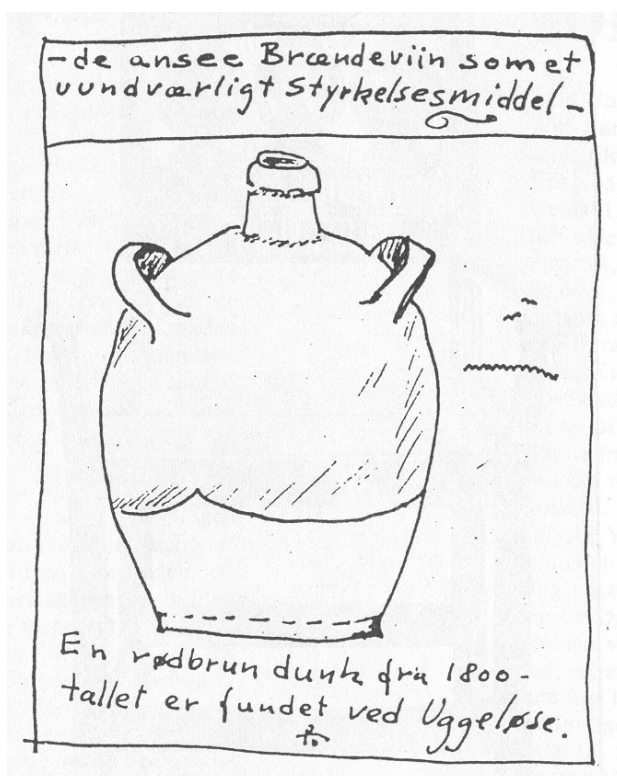 -de ansee Brændeviin som et
uundværligt Styrkelsesmiddel-
En rødbrun dunk fra 1800-
tallet er fundet ved Uggeløse.